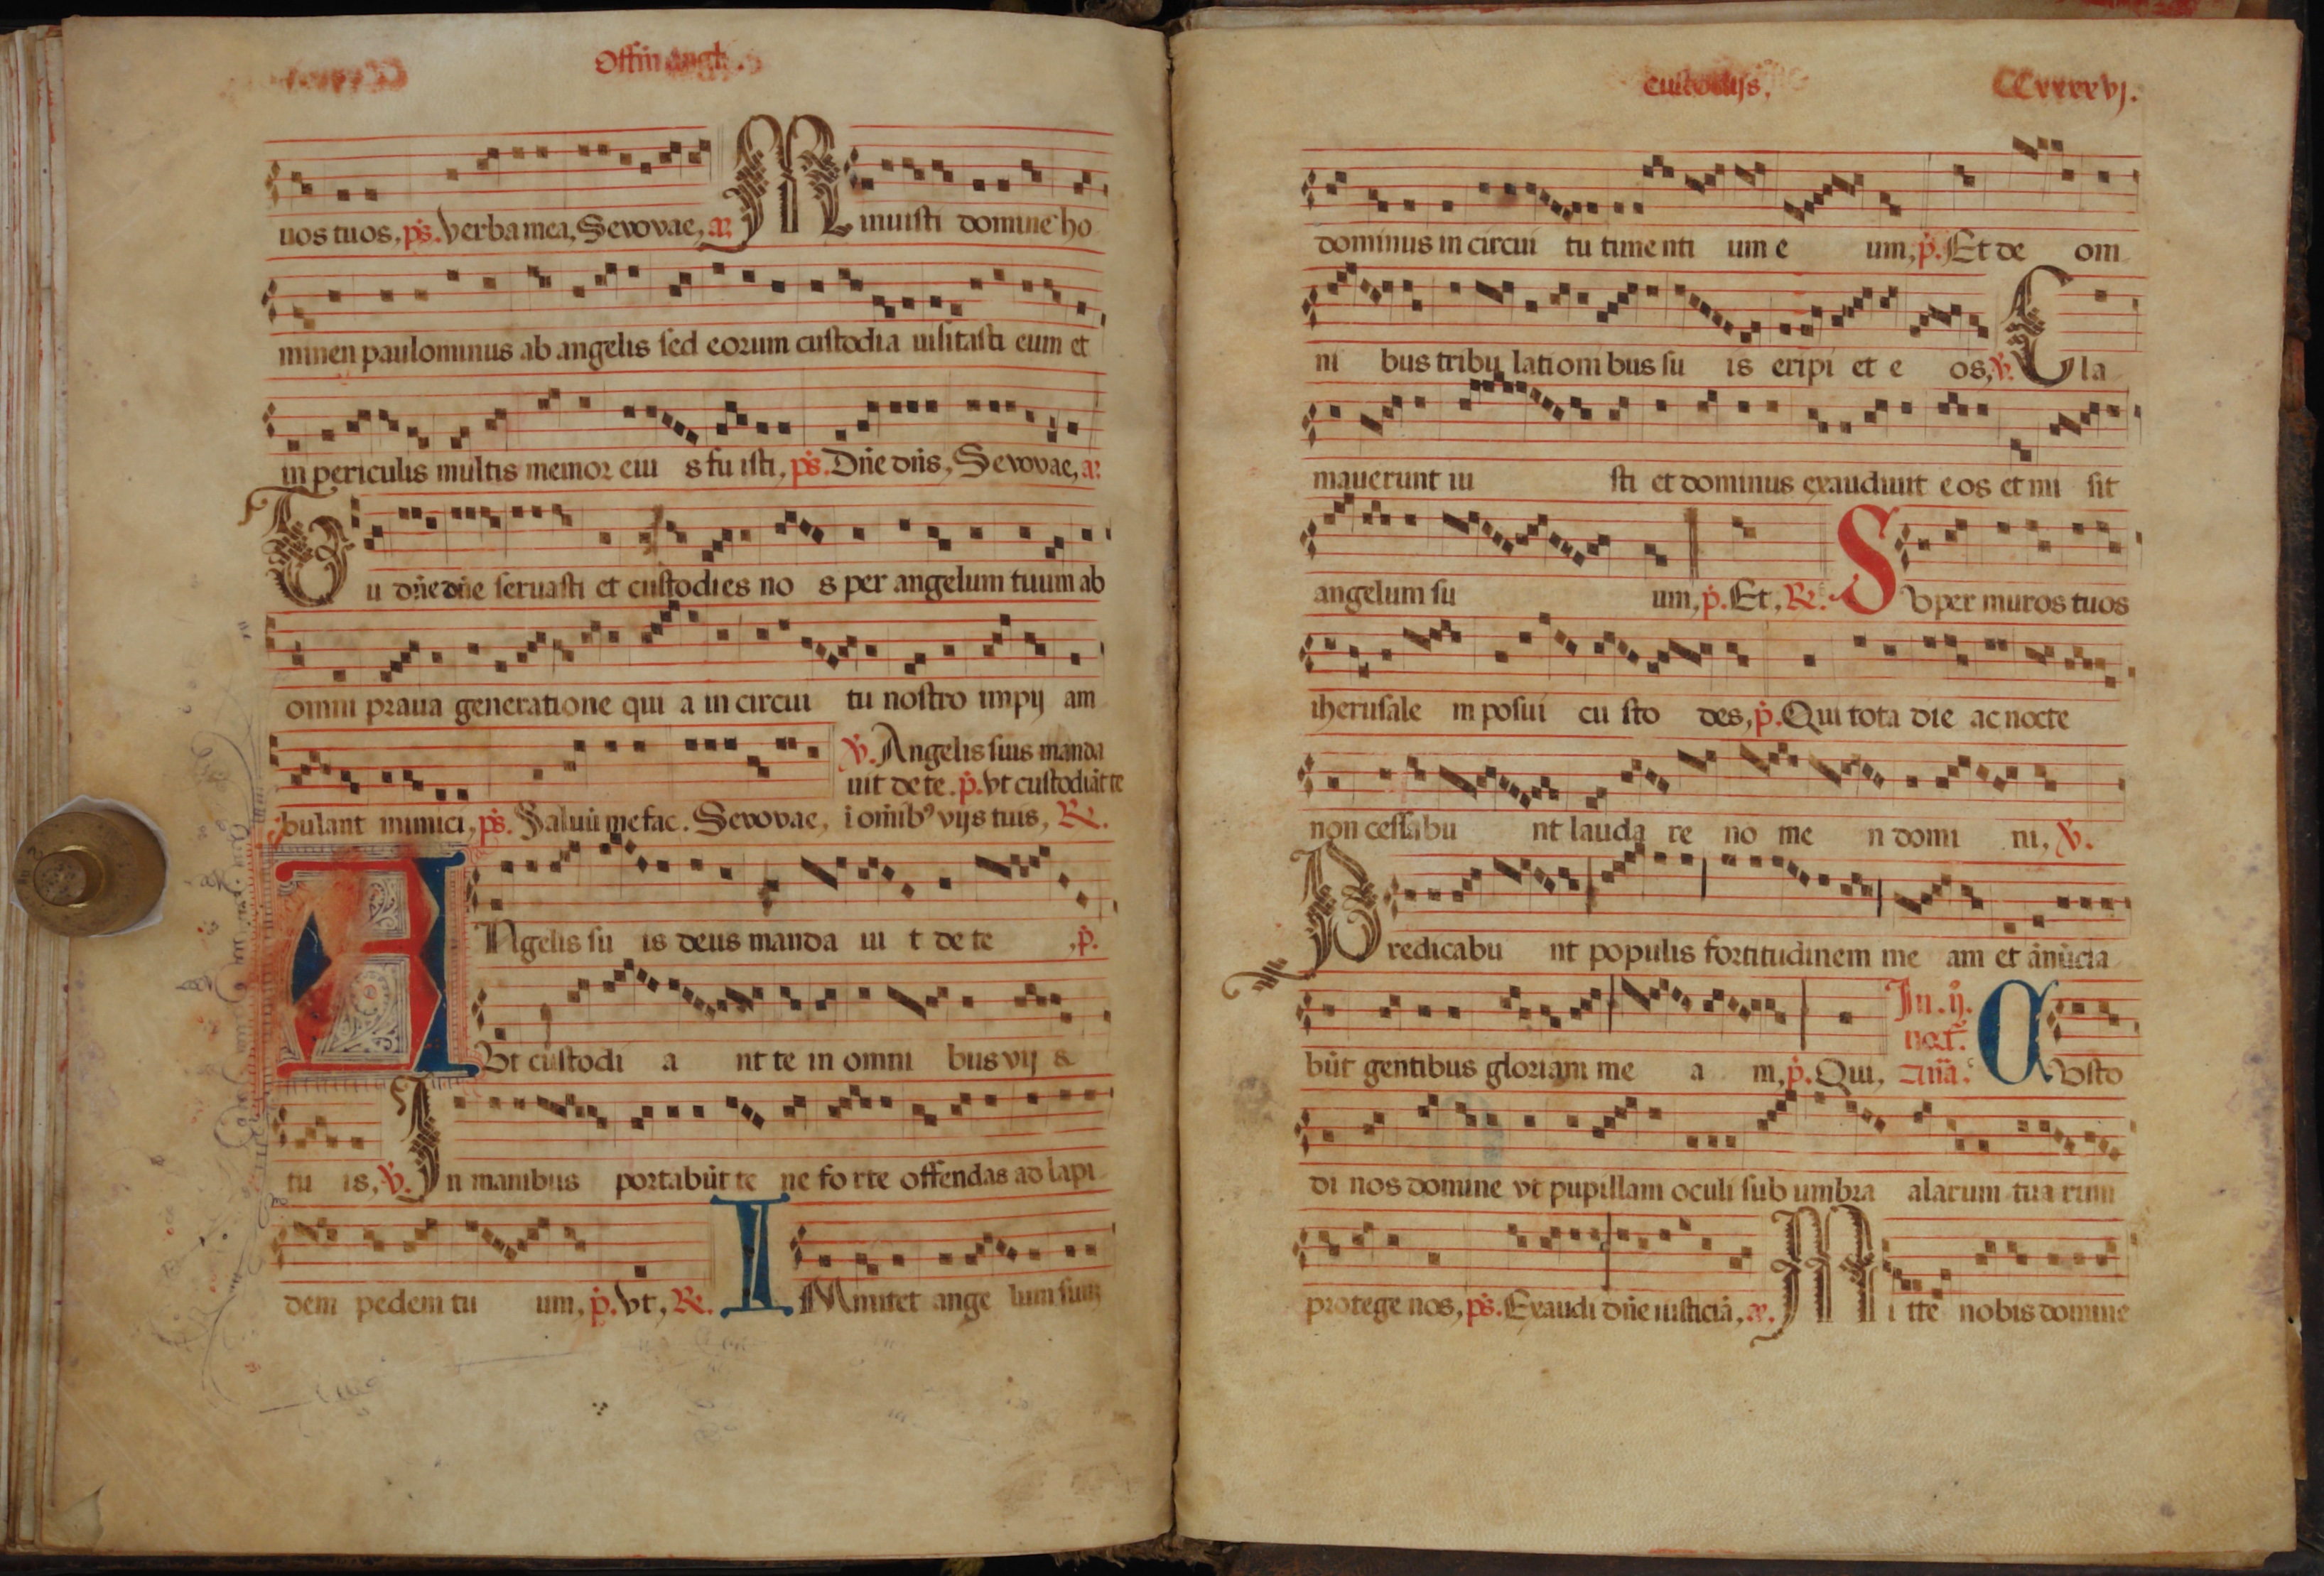 Offiỉ angeli.
uos tuos, ps. Verba mea, Sevovae, an̄.
M inuisti domine ho
minem paulominus ab angelis sed eorum custodia uisitasti eum et
in periculis multis memor eiu s fu isti, ps. Dn̄e dn̄s, Sevovae, an̄
T u dn̄e dn̄e seruasti et custodies no s per angelum tuum ab
omni praua generatione qui a in circui tu nostro impij am
℣. Angelis suis manda
uit de te. p̄. Vt custodiāt te
bulant inimici, ps. Saluū me fac. Sevovae, i om̄ibꝰ vijs tuis, ℟.
A Ngelis su is deus manda ui t de te , p̄.
Vt custodi a nt te in omni bus vij s
tu is, ℣. In manibus portabūt te ne fo rte offendas ad lapi
dem pedem tu um, p̄. Vt, ℟. I Mmitet ange lum suum
custodijs.
CCxxxxvj.
dominus in circui tu time nti um e um, p̄. Et de om
ni bus tribu lationi bus su is eripi et e os, ℣. C la
mauerunt iu sti et dominus exaudiuit eos et mi sit
angelum su um, p̄. Et, ℟. S Vper muros tuos
iherusale m posui cu sto des, p̄. Qui tota die ac nocte
non cessabu nt lauda re no me n domi ni, ℣.
P redicabu nt populis fortitudinem me am et ānūcia
In . ij.
noct̄.
būt gentibus gloriam me a m, p̄. Qui, an̄a. C Vsto
di nos domine vt pupillam oculi sub umbra alarum tua rum
protege nos, ps. Exaudi dn̄e iusticiā, an̄. M i tte nobis domine